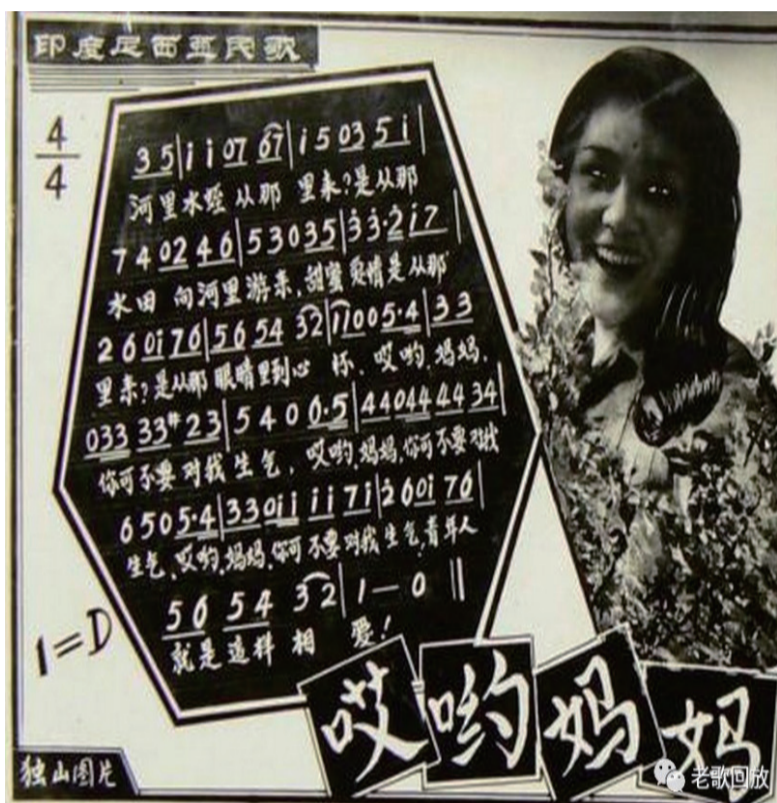 印度尼西亚民歌
4
4
3 5|i i 07 67|i 5 03 5 i|
河里水蛭从那 里来?是从那
7 4 02 46|53035|3̇3̇·2̇i7|
水田 向河里游来,甜蜜爱情是从那
260i76|5654 32|11005·4|33
里来?是从那眼睛里到心 怀. 哎哟.妈妈.
033 33#23|5 4 0 0·5|440444434|
你可不要对我生气. 哎哟.妈妈.你可不要对我
6505·4|330ii ii7i|2̇60i76|
生气.哎哟.妈妈.你可不要对我生气,青年人
56 54 32|1—0‖
就是这样相 爱!
1=D
哎哟妈妈
独山图片
老歌回放